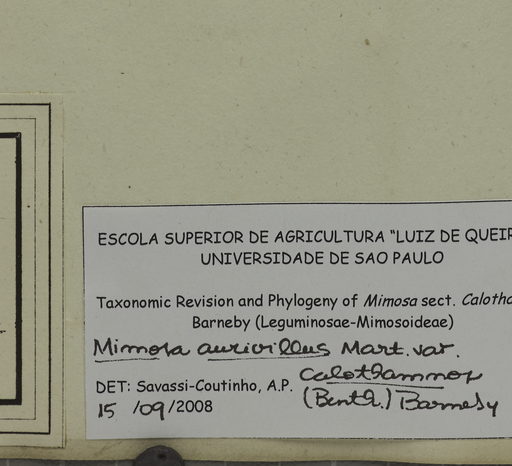 ESCOLA SUPERIOR DE AGRICULTURA "LUIZ DE QUEIR
UNIVERSIDADE DE SAO PAULO
Taxonomic Revision and Phylogeny of Mimosa sect. Calotha
Barneby (Leguminosae-Mimosoideae)
Mimosa aurivillus Mart. var.
calothamnos
DET: Savassi-Coutinho, A.P.
(Benth.) Barneby
15 /09/2008